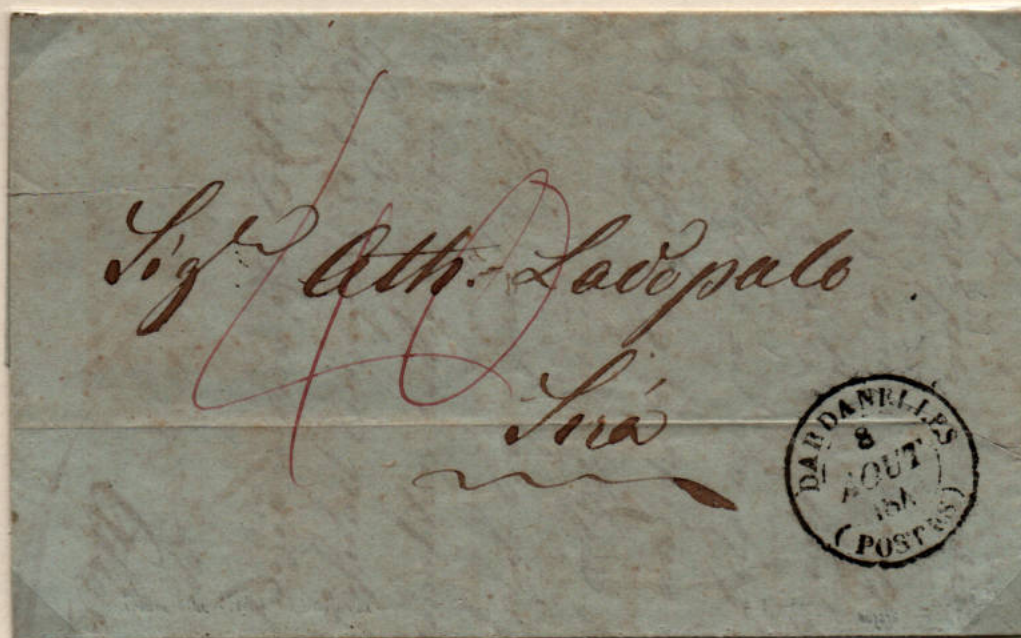 40
Sigr Ath. Lodopalo
Sirá
DARDANELLES
8
AOUT
(POSTES)